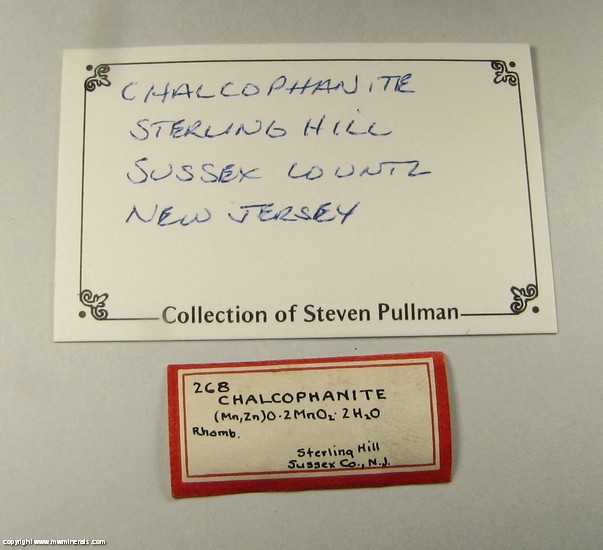 CHALCOPHANITE
STERLING HILL
SUSSEX COUNTY
NEW JERSEY
Collection of Steven Pullman
268
CHALCOPHANITE
(Mn,Zn)O·2MnO₂·2H₂O
Rhomb.
Sterling Hill
Sussex Co., N.J.
copyright www.mwminerals.com